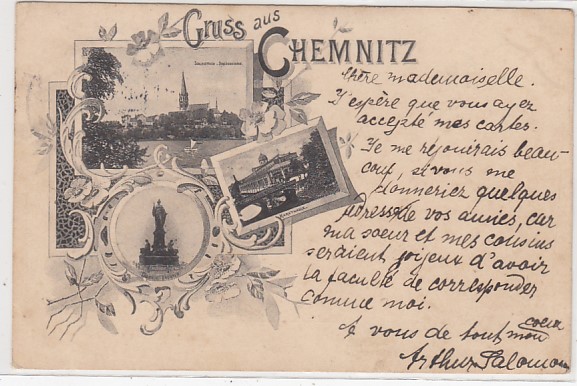 Gruss aus
CHEMNITZ
Chère mademoiselle.
J'espère que vous ayez
accepté mes cartes.
Je me rejouirais beau-
coup, si vous me
donneriez quelques
adresse de vos amies, car
ma soeur et mes cousins
seraient joyeux d'avoir
la faculté de correspondre
comme moi.
A vous de tout mon coeur
Arthur Salomon